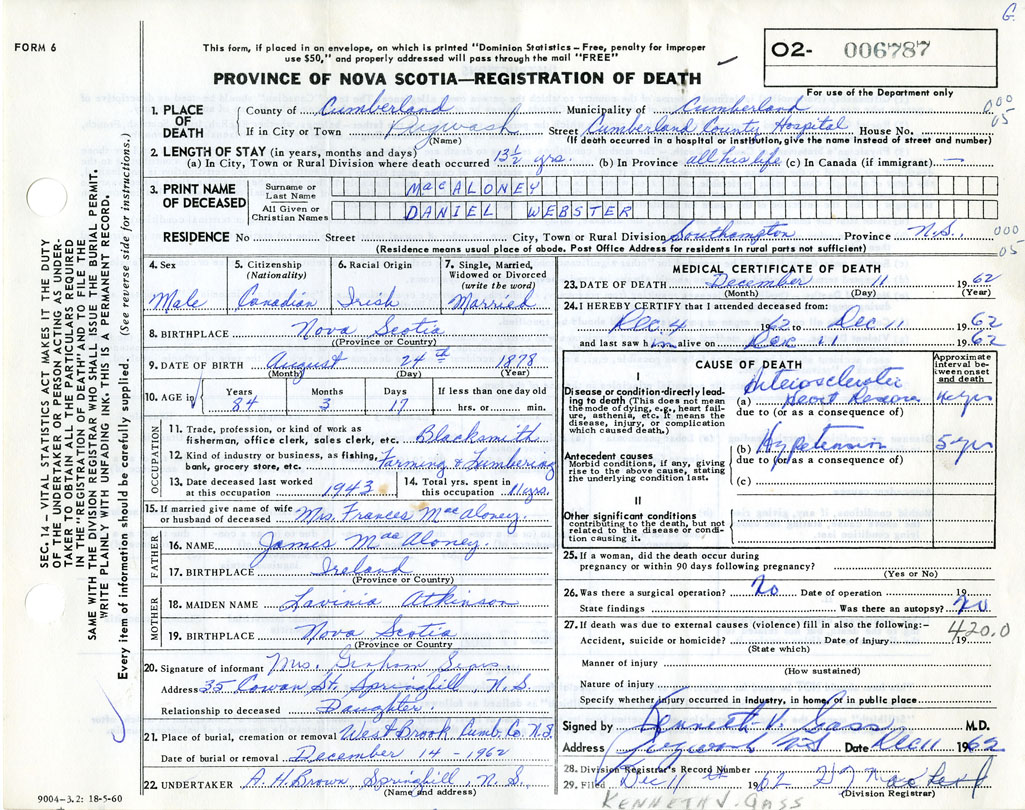 G.
FORM 6
This form, if placed in an envelope, on which is printed "Dominion Statistics – Free, penalty for improper
use $50," and properly addressed will pass through the mail "FREE"
O2- 006787
For use of the Department only
PROVINCE OF NOVA SCOTIA—REGISTRATION OF DEATH
SEC. 14 – VITAL STATISTICS ACT MAKES IT THE DUTY
OF THE UNDERTAKER OR PERSON ACTING AS UNDER-
TAKER TO OBTAIN ALL THE PARTICULARS REQUIRED
IN THE "REGISTRATION OF DEATH" AND TO FILE THE
SAME WITH THE DIVISION REGISTRAR WHO SHALL ISSUE THE BURIAL PERMIT.
WRITE PLAINLY WITH UNFADING INK. THIS IS A PERMANENT RECORD.
Every item of information should be carefully supplied. (See reverse side for instructions.)
1. PLACE OF DEATH County of Cumberland Municipality of Cumberland 000 05
If in City or Town Pugwash Street Cumberland County Hospital House No.
(Name) (If death occurred in a hospital or institution, give the name instead of street and number)
2. LENGTH OF STAY (in years, months and days)
(a) In City, Town or Rural Division where death occurred 13½ yrs. (b) In Province all his life (c) In Canada (if immigrant) —
3. PRINT NAME OF DECEASED Surname or Last Name MacALONEY
All Given or Christian Names DANIEL WEBSTER
RESIDENCE No Street City, Town or Rural Division Southampton Province N.S. 000 05
(Residence means usual place of abode. Post Office Address for residents in rural parts not sufficient)
4. Sex Male
5. Citizenship (Nationality) Canadian
6. Racial Origin Irish
7. Single, Married, Widowed or Divorced (write the word) Married
8. BIRTHPLACE Nova Scotia
(Province or Country)
9. DATE OF BIRTH August 24th 1878
(Month) (Day) (Year)
10. AGE in Years 84 Months 3 Days 17 If less than one day old hrs. or min.
OCCUPATION
11. Trade, profession, or kind of work as
fisherman, office clerk, sales clerk, etc. Blacksmith
12. Kind of industry or business, as fishing,
bank, grocery store, etc. Farming & Lumbering
13. Date deceased last worked at this occupation 1943
14. Total yrs. spent in this occupation 11 yrs.
15. If married give name of wife or husband of deceased Mrs. Frances MacAloney.
FATHER
16. NAME James MacAloney.
17. BIRTHPLACE Ireland
(Province or Country)
MOTHER
18. MAIDEN NAME Lavinia Atkinson
19. BIRTHPLACE Nova Scotia
(Province or Country)
20. Signature of informant Mrs. Graham
Address 35 Cowan St. Springhill, N.S.
Relationship to deceased Daughter.
21. Place of burial, cremation or removal West Brook, Cumb. Co. N.S.
Date of burial or removal December 14 - 1962
22. UNDERTAKER A. H. Brown Springhill, N.S.
(Name and address)
9004–3.2: 18-5-60
MEDICAL CERTIFICATE OF DEATH
23. DATE OF DEATH December 11 1962
(Month) (Day) (Year)
24. I HEREBY CERTIFY that I attended deceased from:
Dec. 4 1962 to Dec 11 1962
and last saw him alive on Dec 11 1962
CAUSE OF DEATH
Approximate interval between onset and death
I
Disease or condition directly leading to death (This does not mean the mode of dying, e.g., heart failure, asthenia, etc. It means the disease, injury, or complication which caused death.)
(a) Arteriosclerotic Heart Disease yrs
due to (or as a consequence of)
Antecedent causes
Morbid conditions, if any, giving rise to the above cause, stating the underlying condition last.
(b) Hypertension 5 yrs
due to (or as a consequence of)
(c)
II
Other significant conditions
contributing to the death, but not related to the disease or condition causing it.
25. If a woman, did the death occur during
pregnancy or within 90 days following pregnancy?
(Yes or No)
26. Was there a surgical operation? No Date of operation 19
State findings Was there an autopsy? No
27. If death was due to external causes (violence) fill in also the following:– 420.0
Accident, suicide or homicide? Date of injury 19
(State which)
Manner of injury
(How sustained)
Nature of injury
Specify whether injury occurred in industry, in home, or in public place
Signed by Kenneth V. Gass M.D.
Address Pugwash NS Date Dec 11 1962
28. Division Registrar's Record Number
29. Filed Dec 11th 1962
(Division Registrar)
KENNETH V. GASS